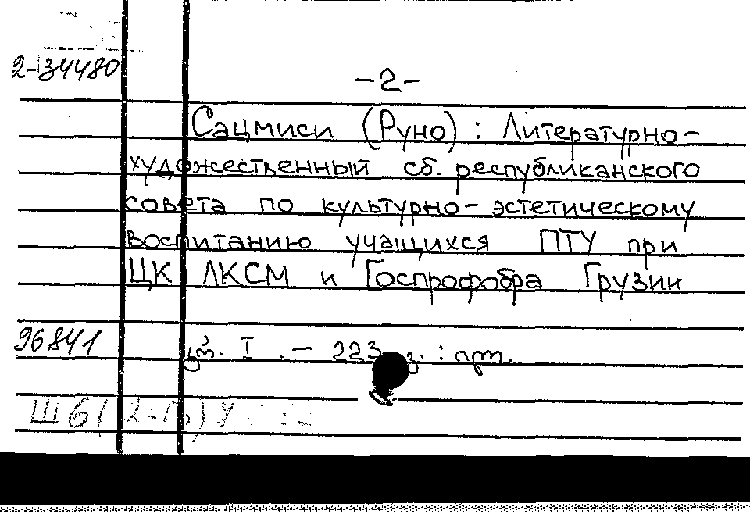 2-34480
-2-
Сацмиси (Руно) : Литературно-
художественный сб. республиканского
совета по культурно-эстетическому
воспитанию учащихся ПТУ при
ЦК ЛКСМ и Госпрофобра Грузии
96841
I .- 223 : арт.
Ш6(2-